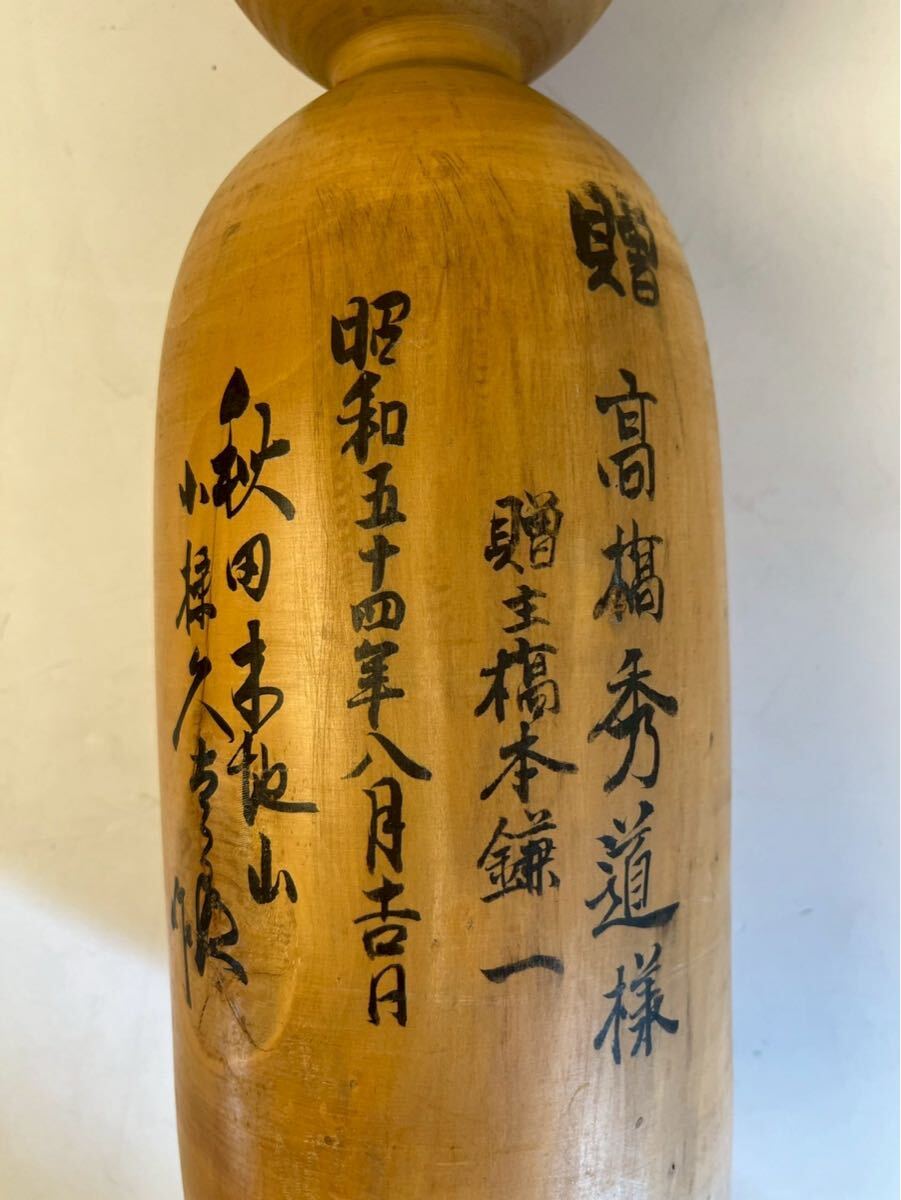 贈 高橋秀道様
贈主橋本鎌一
昭和五十四年八月吉日
秋田木地山
小椋久太郎作